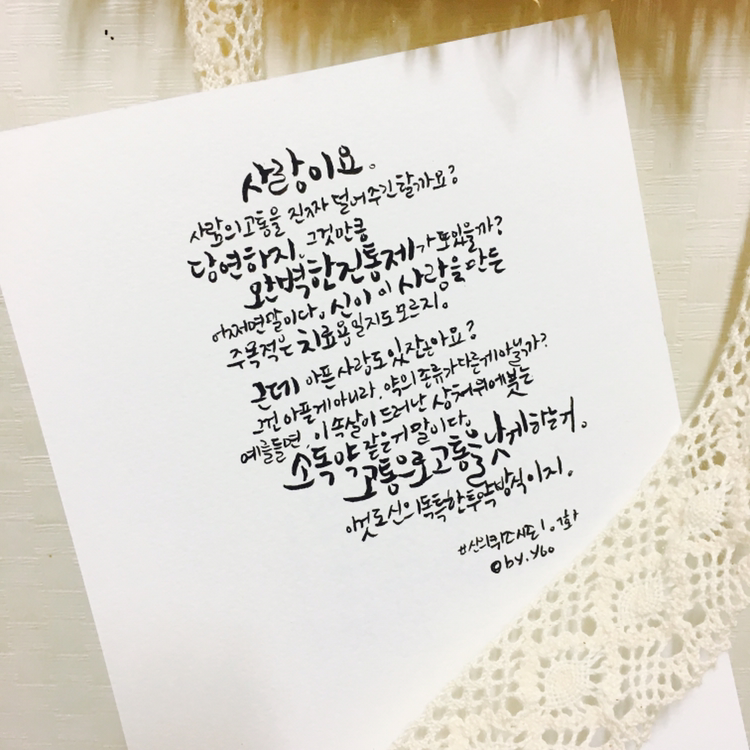 사랑이요.
사람의 고통을 진짜 덜어주긴 할까요?
당연하지. 그것만큼
완벽한 진통제가 또 있을까?
어쩌면 말이다. 신이 이 사랑을 만든
주목적은 치료용일지도 모르지.
근데 아픈 사랑도 있잖아요?
그건 아픈게 아니라. 약의 종류가 다른게 아닐까?
예를들면, 이 속살이 드러난 상처위에 붓는
소독약 같은거 말이다.
고통으로 고통을 낫게 하는거.
이것도 신의 독특한 투약방식이지.
#신의퀴즈시즌1.9화
@by.yoo